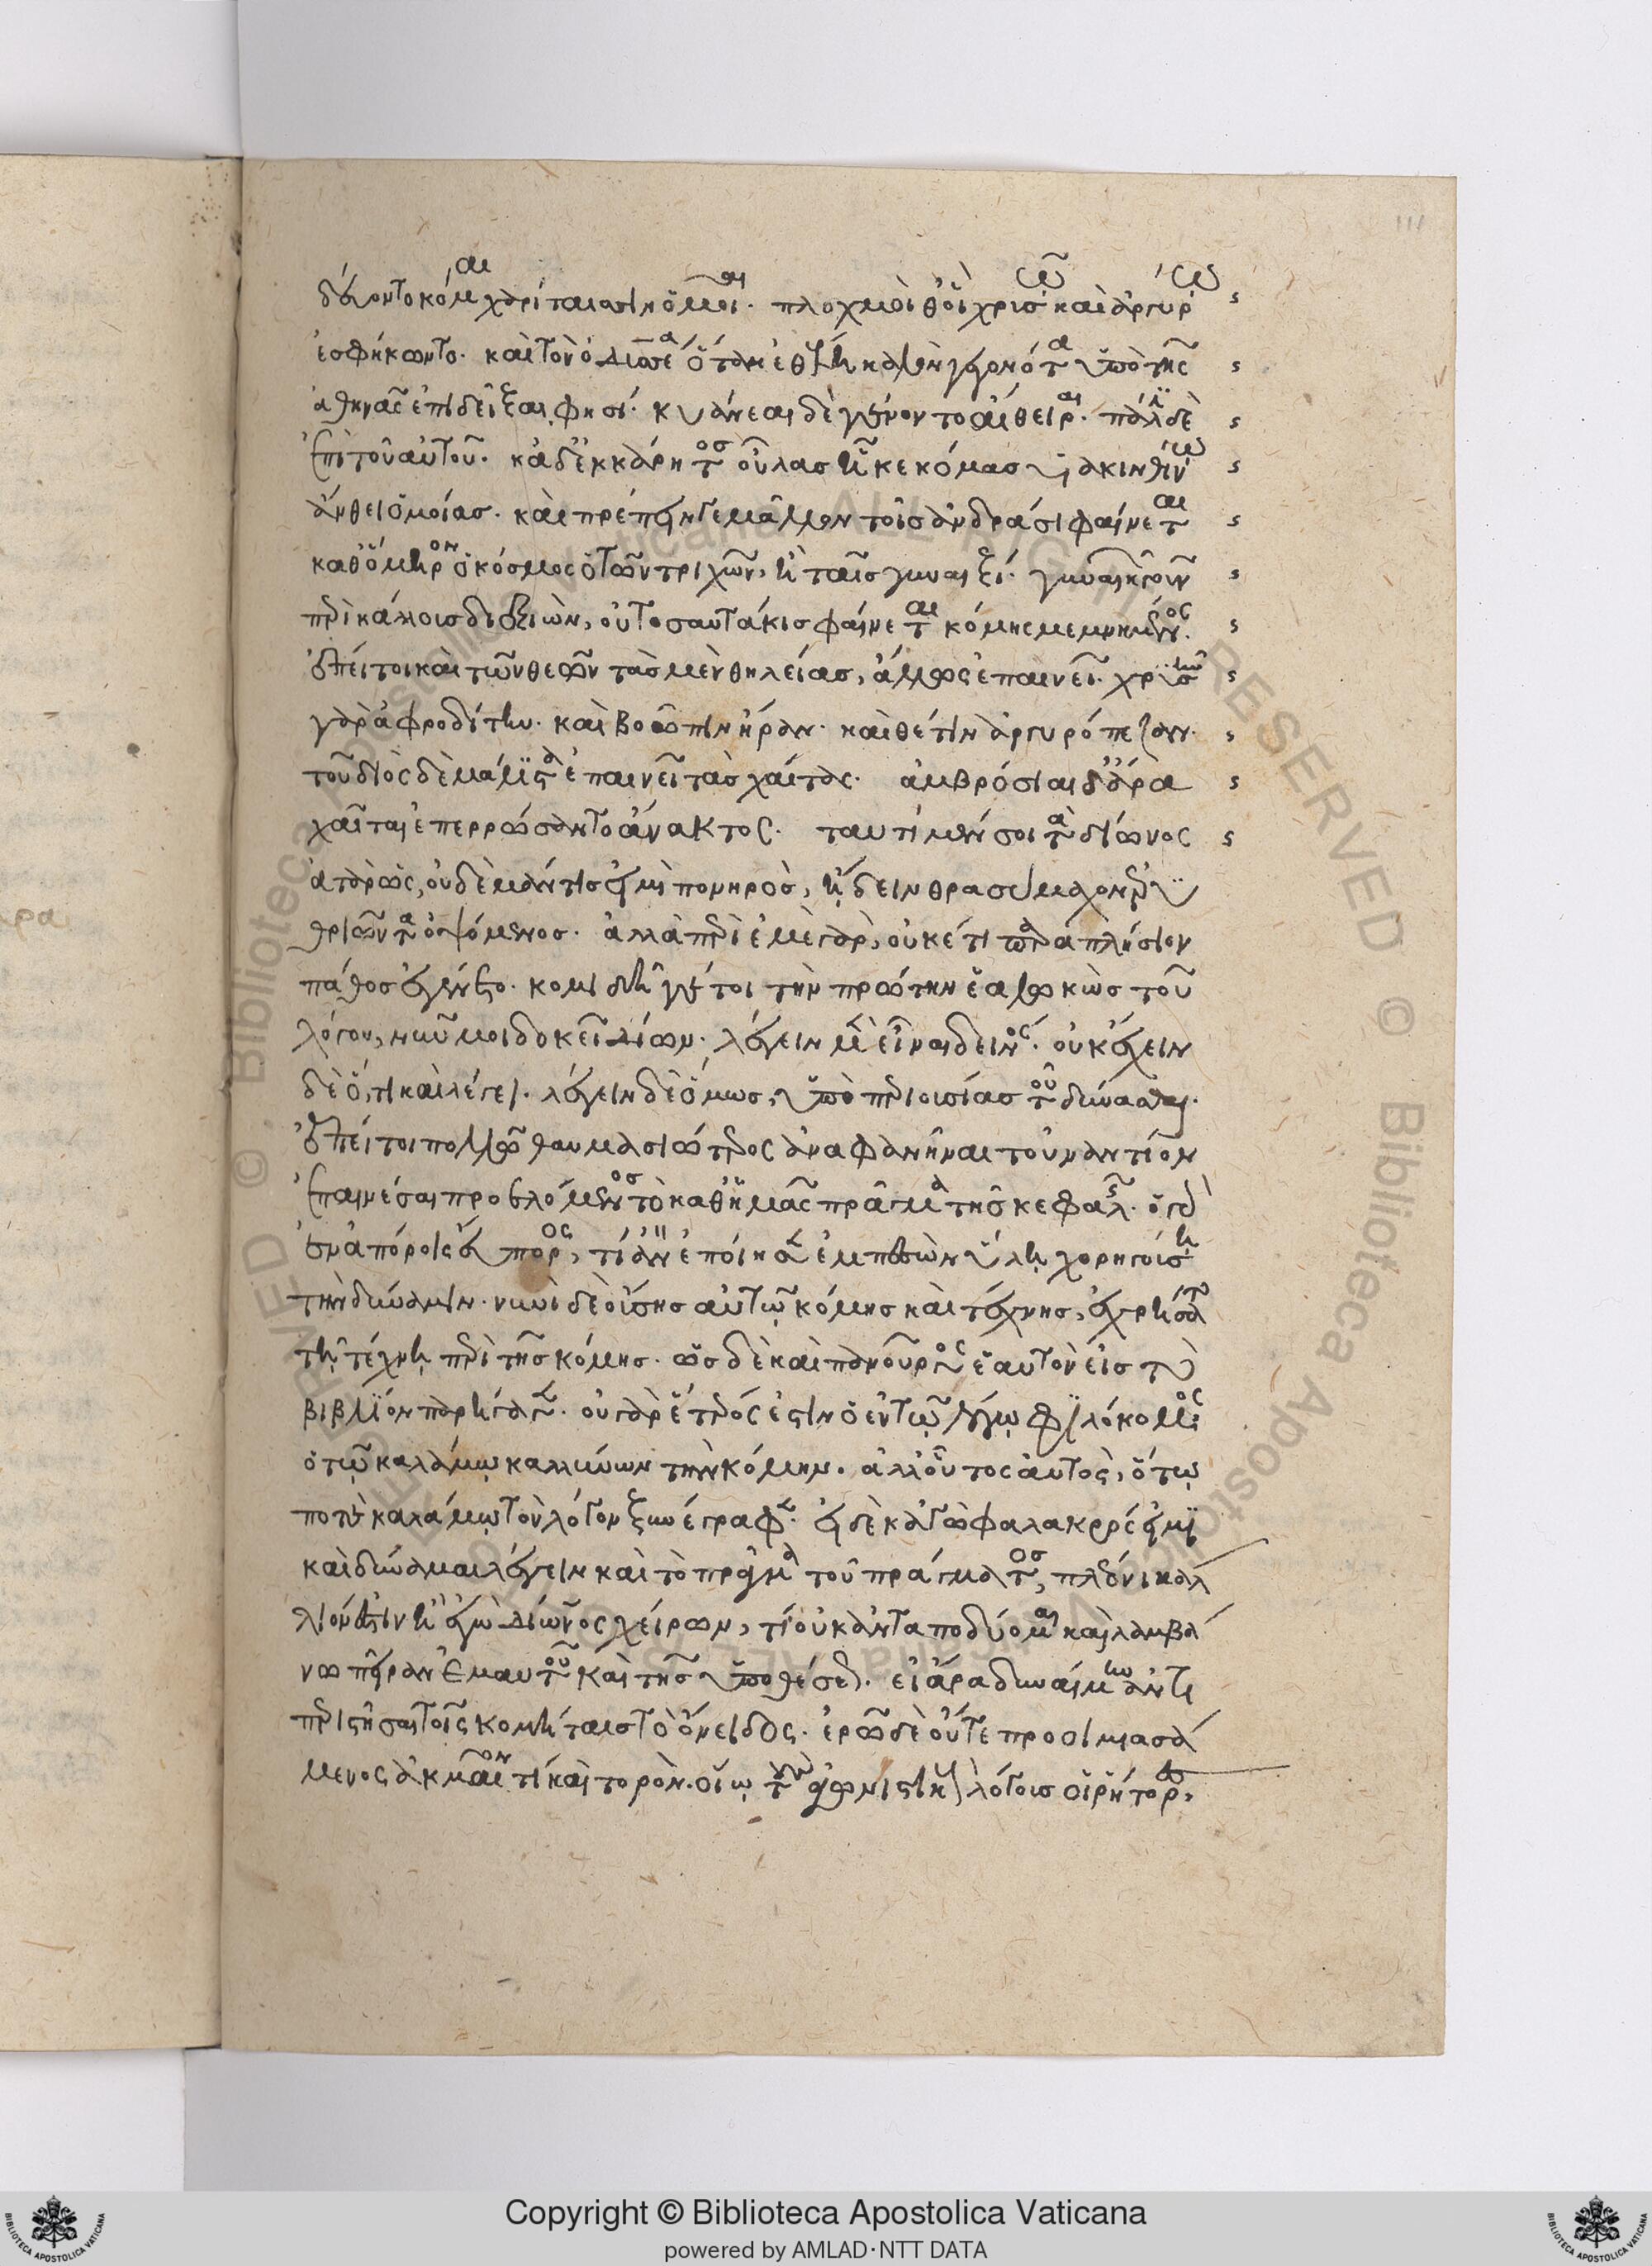 δεύοντο κόμαι χαρίτεσσιν ὁμοῖαι. πλοχμοί θ' οἳ χρυσῷ καὶ ἀργύρῳ
ἐσφήκωντο. καὶ τὸν ὀδυσσέα ὅταν ἐθέλῃ καλὸν γεγονότα ὑπὸ τῆς
ἀθηνᾶς ἐπιδεῖξαι φησί. κυάνεαι δὲ γένοντο ἔθειραι. πάλιν δὲ
ἐπὶ τοῦ αὐτοῦ. κὰδ δὲ κάρητος οὔλας ἧκε κόμας ὑακινθίνῳ
ἄνθει ὁμοίας. καὶ πρέπειν γε μᾶλλον τοῖς ἀνδράσι φαίνεται
καθ' ὅμηρον ὁ κόσμος ὁ τῶν τριχῶν, ἢ ταῖς γυναιξί. γυναικῶν γοῦν
περὶ κάλλους διεξιών, οὐ τοσαυτάκις φαίνεται κόμης μεμνημένος.
ἐπεί τοι καὶ τῶν θεῶν τὰς μὲν θηλείας, ἄλλως ἐπαινεῖ. χρυσῆν
γὰρ ἀφροδίτην. καὶ βοῶπιν ἥραν. καὶ θέτιν ἀργυρόπεζαν.
τοῦ διὸς δὲ μάλιστα ἐπαινεῖ τὰς χαίτας. ἀμβρόσιαι δ' ἄρα
χαῖται ἐπερρώσαντο ἄνακτος. ταυτὶ μέν σοι τὰ δίωνος
ἀτὰρ ὡς, οὐδὲ μάντις εἰμὶ πονηρὸς, ᾔδειν θρασύμαχον
ἀλλὰ περὶ ἐμὲ γὰρ, οὐκέτι παραπλήσιον
πάθος ἐγένετο. κομιδῇ γέ τοι τὴν πρώτην ἑαλωκὼς τοῦ
λόγου, νῦν μοι δοκεῖ δίων. λέγειν μὲν εἶναι δεινός. οὐκ ἔχειν
δὲ ὅ, τι καὶ λέγει. λέγειν δὲ ὅμως, ὑπὸ περιουσίας τοῦ δύνασθαι.
ἐπεί τοι πολλῷ θαυμασιώτερος ἀναφανῆναι τοὐναντίον
ἐπαινέσαι προελόμενος τὸ καθ' ἡμᾶς πρᾶγμα τῆς κεφαλῆς. ὁ γὰρ
ἐν ἀπόροις εὔπορος, τί ἂν ἐποίησεν ἐμπεσὼν ὕλῃ χορηγούσῃ
τὴν δύναμιν. νυνὶ δὲ οὔσης αὐτῷ κόμης καὶ τέχνης, ἐχρήσατο
τῇ τέχνῃ περὶ τῆς κόμης. ὡς δὲ καὶ πανούργως ἑαυτὸν εἰς τὸ
βιβλίον παρήγαγεν. οὐ γὰρ ἕτερός ἐστιν ὁ ἐν τῷ λόγῳ φιλόκομος
ὁ τῷ καλάμῳ καλλύνων τὴν κόμην. ἀλλ' οὗτος αὐτὸς, ὅτῳ
ποτὲ καλάμῳ τὸν λόγον ξυνέγραφεν. εἰ δὲ κἀγὼ φαλακρός εἰμι
καὶ δύναμαι λέγειν καὶ τὸ πρᾶγμα τοῦ πράγματος, πλέονι καλ
λιόν ἐστιν ἢ ἐγὼ δίωνος χείρων, τί οὐκ ἀνταποδύομαι καὶ λαμβά
νω πεῖραν ἐμαυτοῦ καὶ τῆς ὑποθέσεως. εἰ ἄρα δυναίμην ἀντι
περιστῆσαι τοῖς κομήταις τὸ ὄνειδος. ἐρῶ δὲ οὔτε προοιμιασά
μενος ἀκμαῖόν τι καὶ τορὸν. οἵῳ τῶν ἀγωνιστικῶν λόγοις οἱ ῥήτορες,